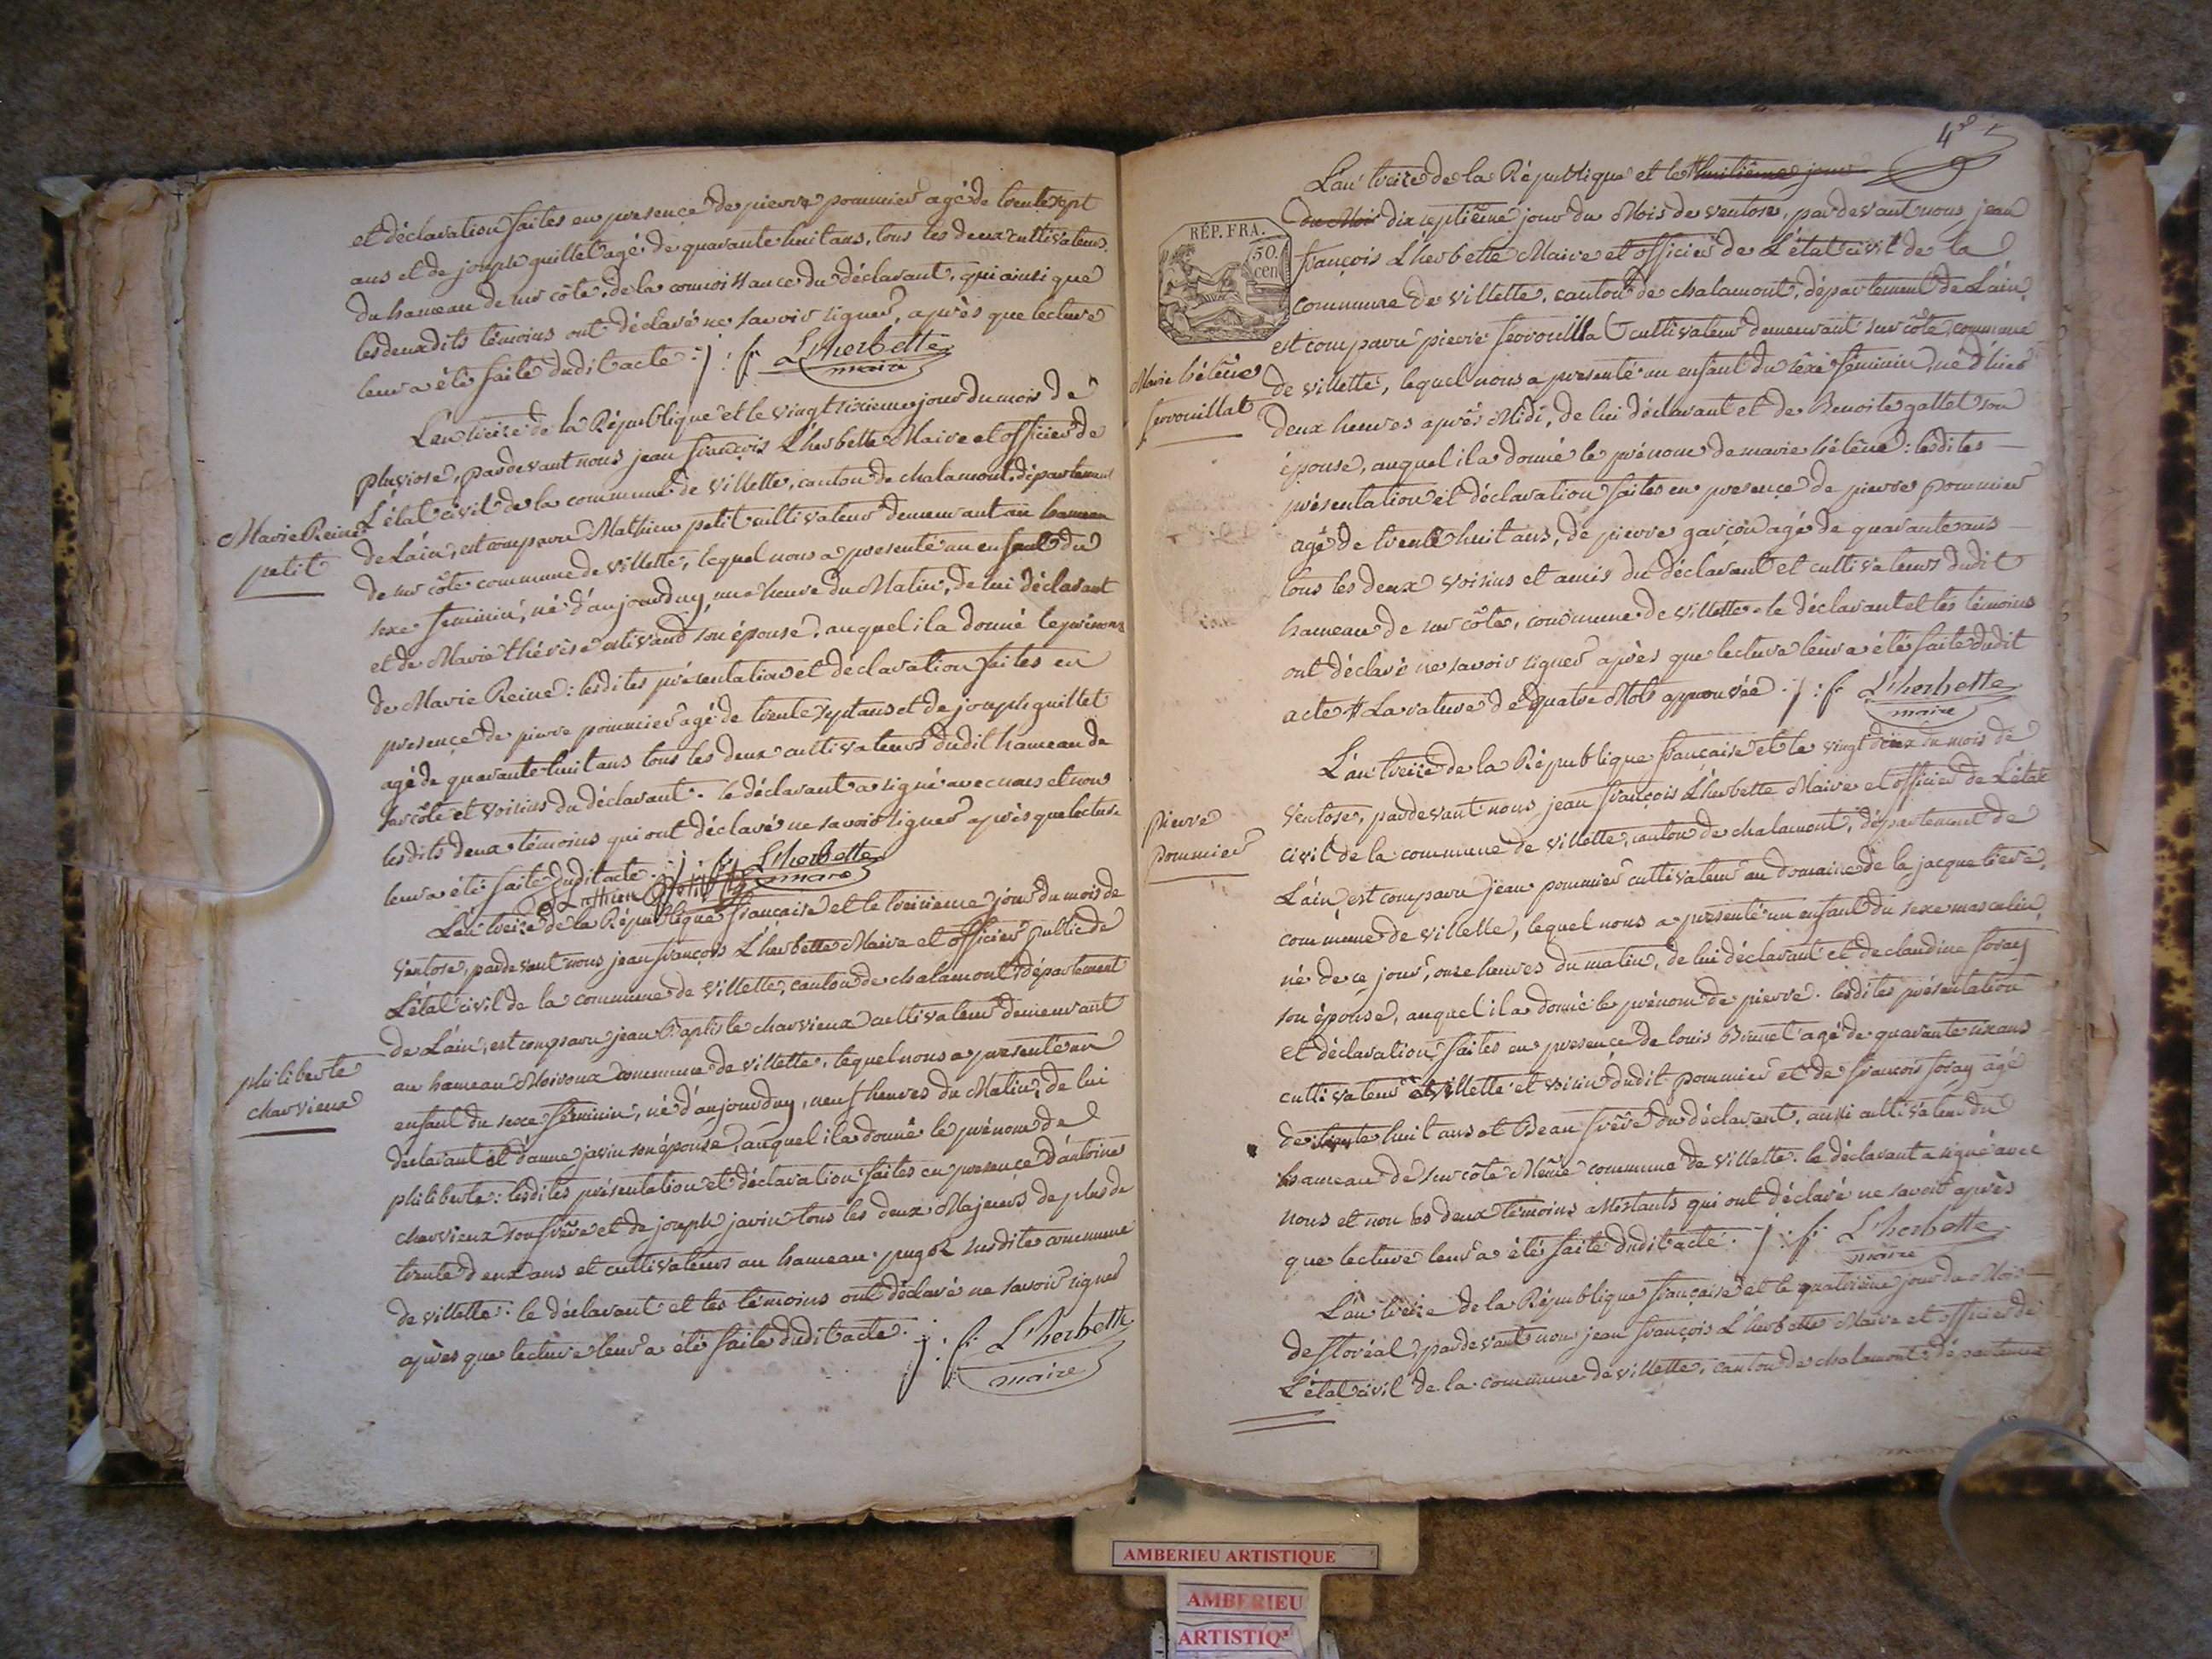 et déclaration faites en presence de pierre pommier agé de trente sept
ans et de joseph guillet agé de quarante huit ans, tous les deux cultivateurs
du hameau de sur côte, de la connoissance du déclarant, qui ainsi que
lesdeuxdits témoins ont déclaré ne savoir signer, après que lecture
leur a été faite dudit acte . j : f. L'herbette
maire
L'an treize de la République et le vingt sixieme jour du mois de
pluviose, pardevant nous jean françois L'herbette Maire et officier de
L'état civil de la commune de Villette, canton de chalamont, département
Marie Reine
petit
de L'ain, est comparu Mathieu petit cultivateur demeurant au hameau
de sur côte commune de Villette, lequel nous a presenté un enfant du
sexe feminin, né d'aujourduy, une heure du Matin, de lui déclarant
et de Marie thérèse son épouse, auquel il a donné le prénom
de Marie Reine : lesdites présentation et déclaration faites en
presence de pierre pommier agé de trente sept ans et de joseph guillet
agé de quarante huit ans tous les deux cultivateurs dudit hameau de
sur côte et voisins du déclarant . le déclarant a signé avec nous et non
lesdits deux témoins qui ont déclaré ne savoir signer après que lecture
leur a été faite dudit acte . j : f. L'herbette
Mathieu Petit maire
L'an treize de la République française et le treizieme jour du mois de
Ventose, pardevant nous jean françois L'herbette Maire et officier public de
L'état civil de la commune de Villette, canton de chalamont, département
de L'ain, est comparu jean Baptiste charvieux cultivateur demeurant
philiberte
charvieux
au hameau commune de Villette, lequel nous a presenté un
enfant du sexe féminin, né d'aujourduy, neuf heures du Matin, de lui
déclarant et d'anne javin son épouse, auquel il a donné le prénom de
philiberte : lesdites présentation et déclaration faites en presence d'antoine
charvieux son frère et de joseph javin tous les deux Majeurs de plus de
trente deux ans et cultivateurs au hameau susdite commune
de villette . le déclarant et les témoins ont déclaré ne savoir signer
après que lecture leur a été faite dudit acte . j : f. L'herbette
maire
L'an treize de la République et le huitième jour
RÉP. FRA.
50.
cen
du Mois dix septième jour du Mois de ventose, pardevant nous jean
françois L'herbette Maire et officier de L'état civil de la
commune de Villette, canton de chalamont, département de L'ain,
est comparu pierre ferrouillat cultivateur demeurant sur côte, commune
Marie hélène
ferrouillat
de villette, lequel nous a presenté un enfant du sexe féminin, né d'hier
deux heures après Midi, de lui déclarant et de Benoite gallet son
épouse, auquel il a donné le prénom de marie hélène : lesdites
présentation et déclaration faites en presence de pierre pommier
agé de trente huit ans, de pierre garçon agé de quarante ans
tous les deux voisins et amis du déclarant et cultivateurs dudit
hameau de sur côte, commune de Villette . le déclarant et les témoins
ont déclaré ne savoir signer après que lecture leur a été faite dudit
acte # La rature de quatre Mots approuvée . j : f. L'herbette
maire
L'an treize de la République française et le vingt deux du mois de
Ventose, pardevant nous jean françois L'herbette Maire et officier de L'état
pierre
pommier
civil de la commune de Villette, canton de chalamont, département de
L'ain, est comparu jean pommier cultivateur au domaine de la jacquetiere,
commune de Villette, lequel nous a presenté un enfant du sexe masculin,
né de ce jour, onze heures du matin, de lui déclarant et de claudine foray
son épouse, auquel il a donné le prénom de pierre . lesdites présentation
et déclaration, faites en presence de louis Bonnet agé de quarante six ans
cultivateur à Villette et voisin dudit pommier et de françois foray agé
de trente huit ans et Beau frère du déclarant, aussi cultivateur du
hameau de sur côte Même commune de Villette . le déclarant a signé avec
nous et non les deux témoins assistants qui ont déclaré ne savoir après
que lecture leur a été faite dudit acte . j : f. L'herbette
maire
L'an treize de la République française et le quatrième jour du Mois
de floréal, pardevant nous jean françois L'herbette Maire et officier de
L'état civil de la commune de Villette, canton de chalamont, département
AMBERIEU ARTISTIQUE
AMBERIEU
ARTISTIQ